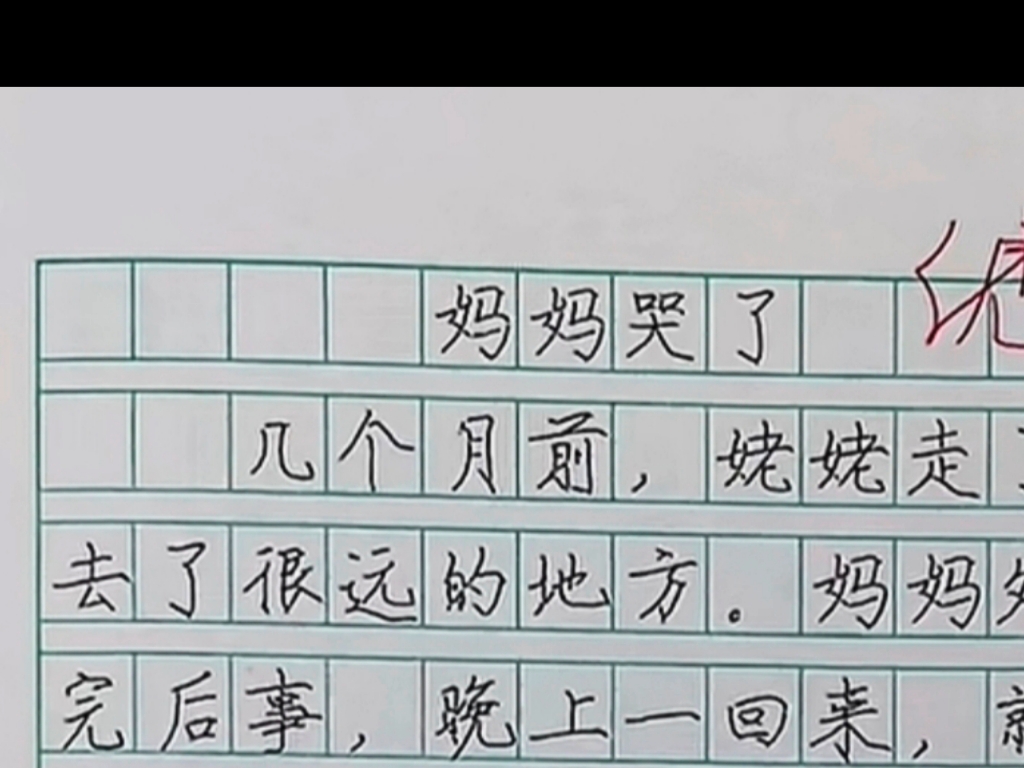 妈妈哭了
几个月前，姥姥走
去了很远的地方。妈妈
完后事，晚上一回来，